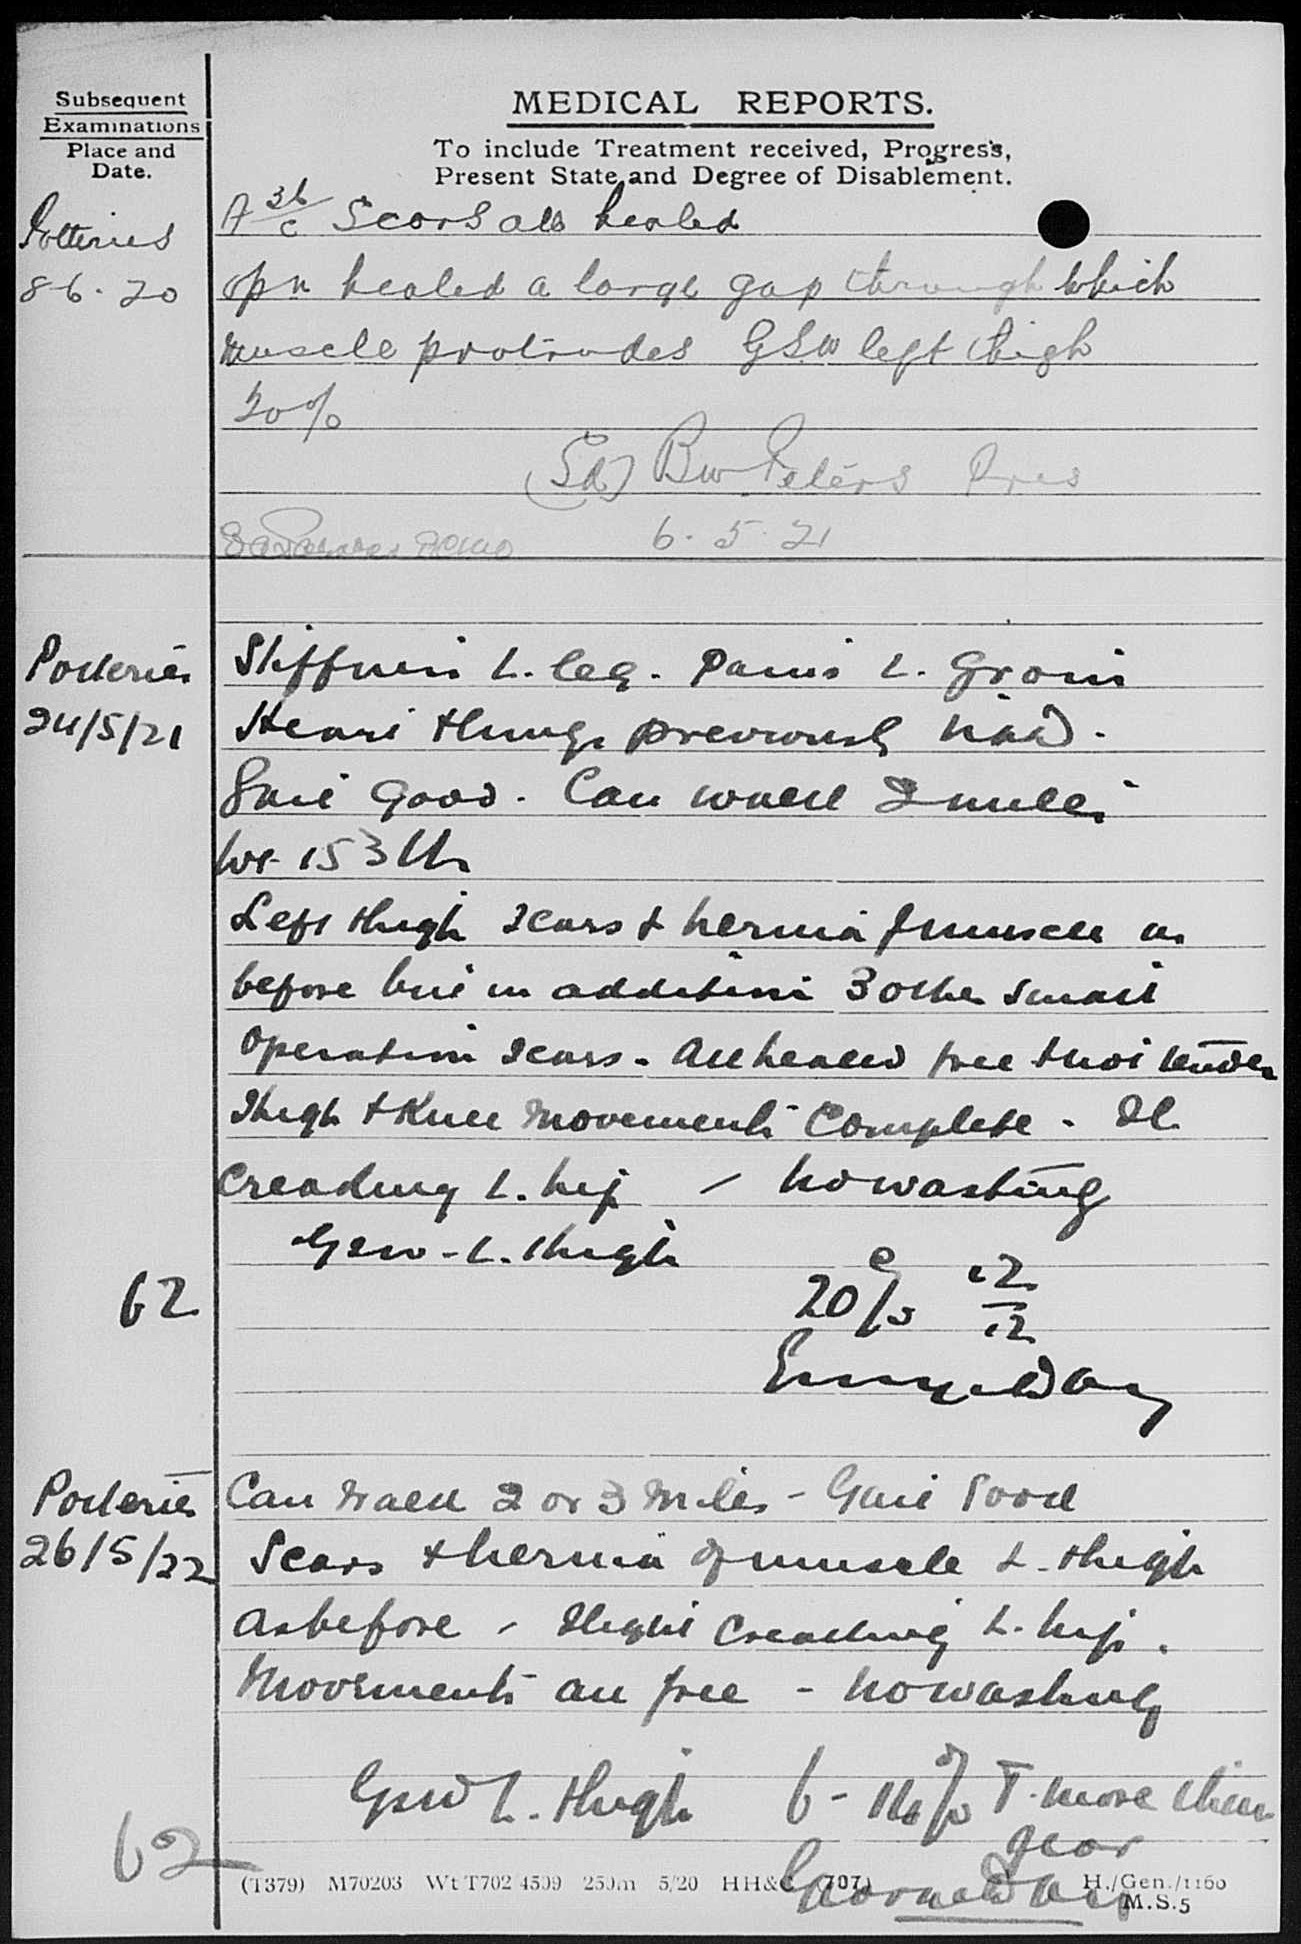 Subsequent
Examinations
Place and
Date.
MEDICAL REPORTS.
To include Treatment received, Progress,
Present State and Degree of Disablement.
Potteries
8-6-20
A 36/c Scars all healed
opn healed a large gap through which
muscle protrudes GSW left thigh
20%
(Sd) BW Peters Pres
6.5.21
Potteries
24/5/21
Stiffness L. leg. Pains L. groin
Heart & lungs previously NAD.
Gait good. Can walk 2 miles
Wt 153 lbs
Left thigh scars & hernia of muscle as
before but in addition 3 other small
operation scars. All healed free & not tender
Thigh & Knee movements complete. Sl.
creaking L. hip / no wasting
GSW - L. thigh
62
20% 12/12
Potteries
26/5/22
Can walk 2 or 3 miles - Gait Good
Scars & hernia of muscle L. thigh
as before - slight creaking L. hip.
Movements all free - no wasting
GSW L. thigh 6-14% T. more than
year
62
(T379) M70203 Wt T702 4509 250m 5/20 HH& 707)
H./Gen./1160
M.S.5